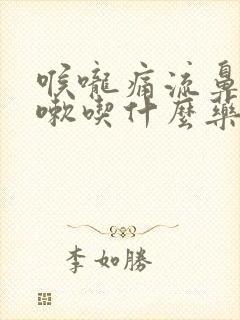 喉嚨痛流鼻
嗽喫什麼藥
李如勝